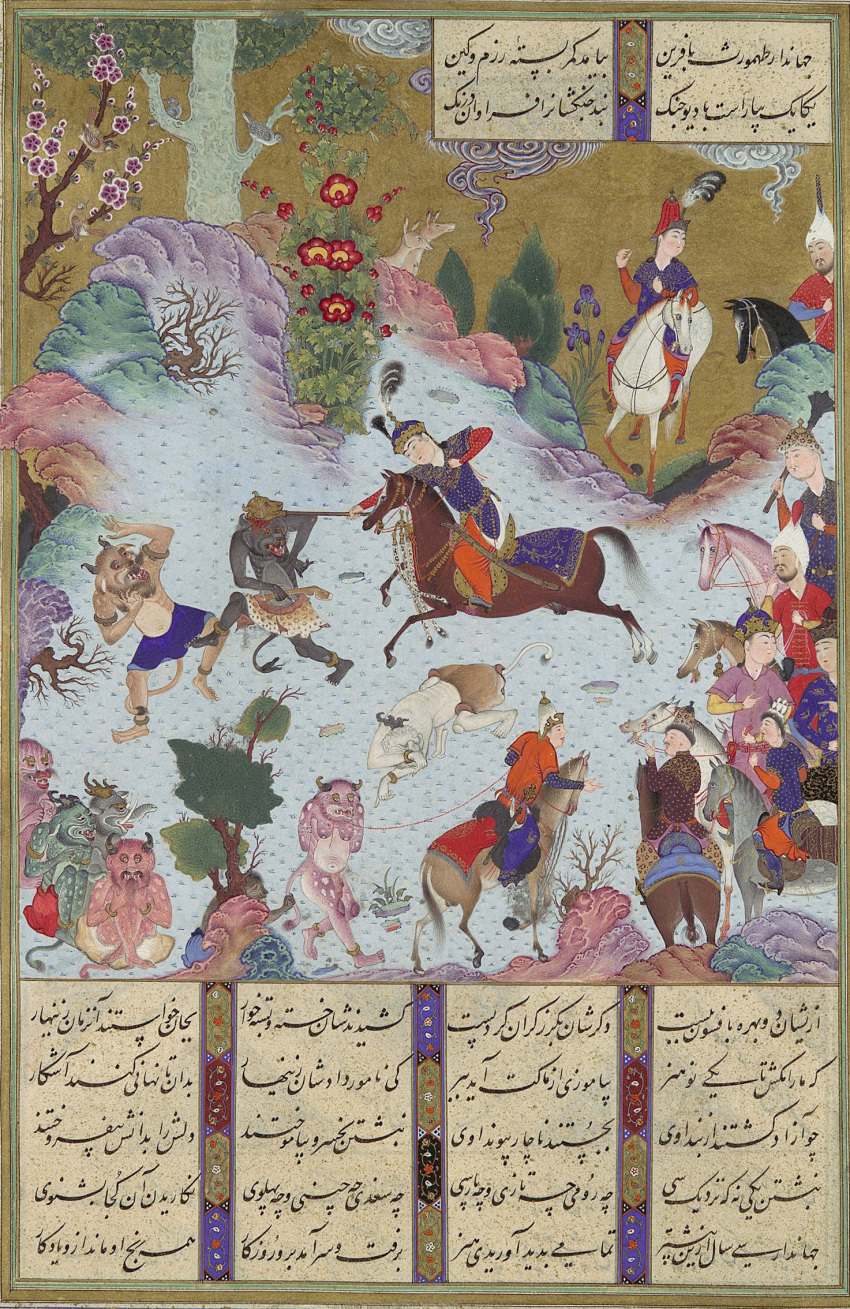 جهاندار طهمورث بافرین بیامد کمربسته رزم و کین
یکایک بیاراست با دیو جنگ نبد جنگشانرا فراوان درنگ
ازیشان دو بهره بافسون ببست دگرشان بگرز گران کرد پست کشیدندشان خسته و بسته خوار بجان خواستند آنزمان زینهار
که ما را مکش تا یکی نو هنر بیاموزی از ماکت آید ببر کی نامور دادشان زینهار بدان تا نهانی کنند آشکار
چو آزاد گشتند از بند اوی بجستند ناچار پیوند اوی نبشتن بخسرو بیاموختند دلش را بدانش بیفروختند
نبشتن یکی نه که نزدیک سی چه رومی چه تازی و چه پارسی چه سغدی چه چینی و چه پهلوی نگاریدن آن کجا بشنوی
جهاندار سی سال ازین پیشتر تمامی پدید آوریدی هنر برفت و سرآمد برو روزگار همه رنج او ماند ازو یادگار